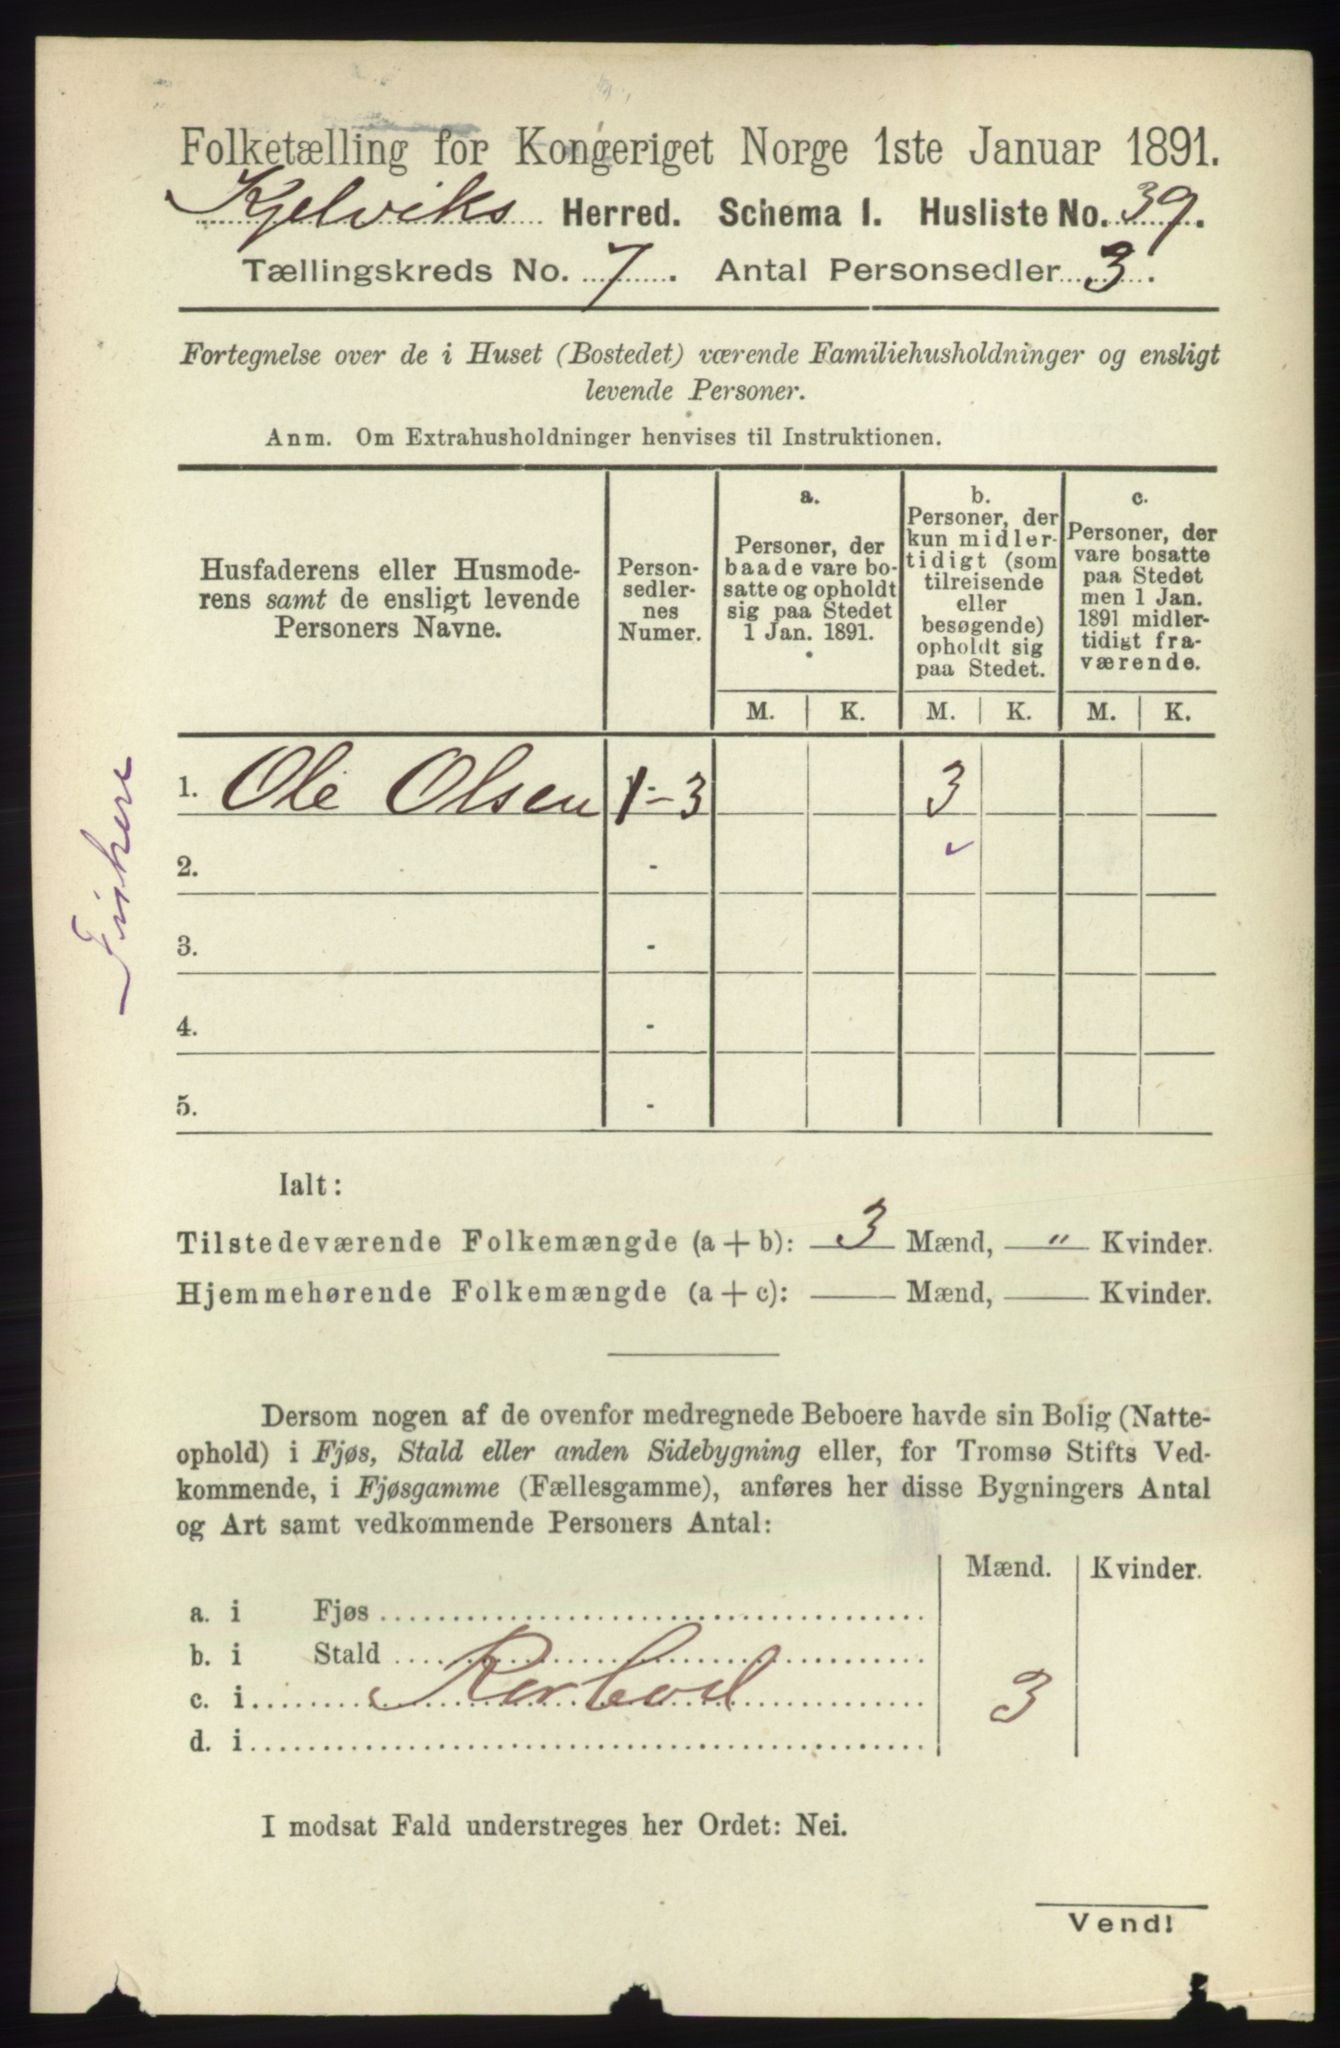 Folketælling for Kongeriget Norge 1ste Januar 1891.
Kjelviks Herred. Schema I. Husliste No. 39.
Tællingskreds No. 7. Antal Personsedler 3.
Fortegnelse over de i Huset (Bostedet) værende Familiehusholdninger og ensligt
levende Personer.
Anm. Om Extrahusholdninger henvises til Instruktionen.
Husfaderens eller Husmode-
rens samt de ensligt levende
Personers Navne.
Person-
sedler-
nes
Numer.
a.
Personer, der
baade vare bo-
satte og opholdt
sig paa Stedet
1 Jan. 1891.
b.
Personer, der
kun midler-
tidigt (som
tilreisende
eller
besøgende)
opholdt sig
paa Stedet.
c.
Personer, der
vare bosatte
paa Stedet
men 1 Jan.
1891 midler-
tidigt fra-
værende.
M. K. M. K. M. K.
1. Ole Olsen 1-3 3
2. -
3. -
4. -
5. -
Fiskere
Ialt:
Tilstedeværende Folkemængde (a+b): 3 Mænd, " Kvinder.
Hjemmehørende Folkemængde (a+c): Mænd, Kvinder.
Dersom nogen af de ovenfor medregnede Beboere havde sin Bolig (Natte-
ophold) i Fjøs, Stald eller anden Sidebygning eller, for Tromsø Stifts Ved-
kommende, i Fjøsgamme (Fællesgamme), anføres her disse Bygningers Antal
og Art samt vedkommende Personers Antal:
Mænd. Kvinder.
a. i Fjøs
b. i Stald
c. i Rorbod 3
d. i
I modsat Fald understreges her Ordet: Nei.
Vend!